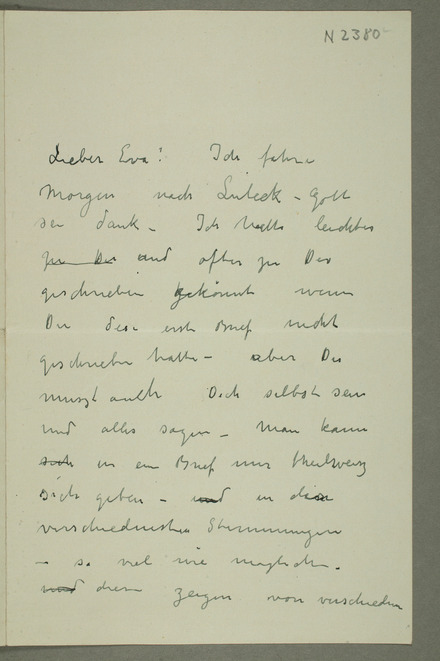 N 2380
Lieber Eva! Ich fahre
Morgen nach Lübeck – Gott
sei dank – Ich hätte leichter
zu Dir und öfter zu Dir
geschrieben gekönnt wenn
Du den erst Brief nicht
geschrieben hatte – aber Du
muszt auch Dich selbst sein
und alles sagen – Man kann
sich in ein Brief nur theilweisz
Sich geben – und in die
verschiednesten Stimmungen
– so viel wie moglich –
und diese zeigen von verschieden